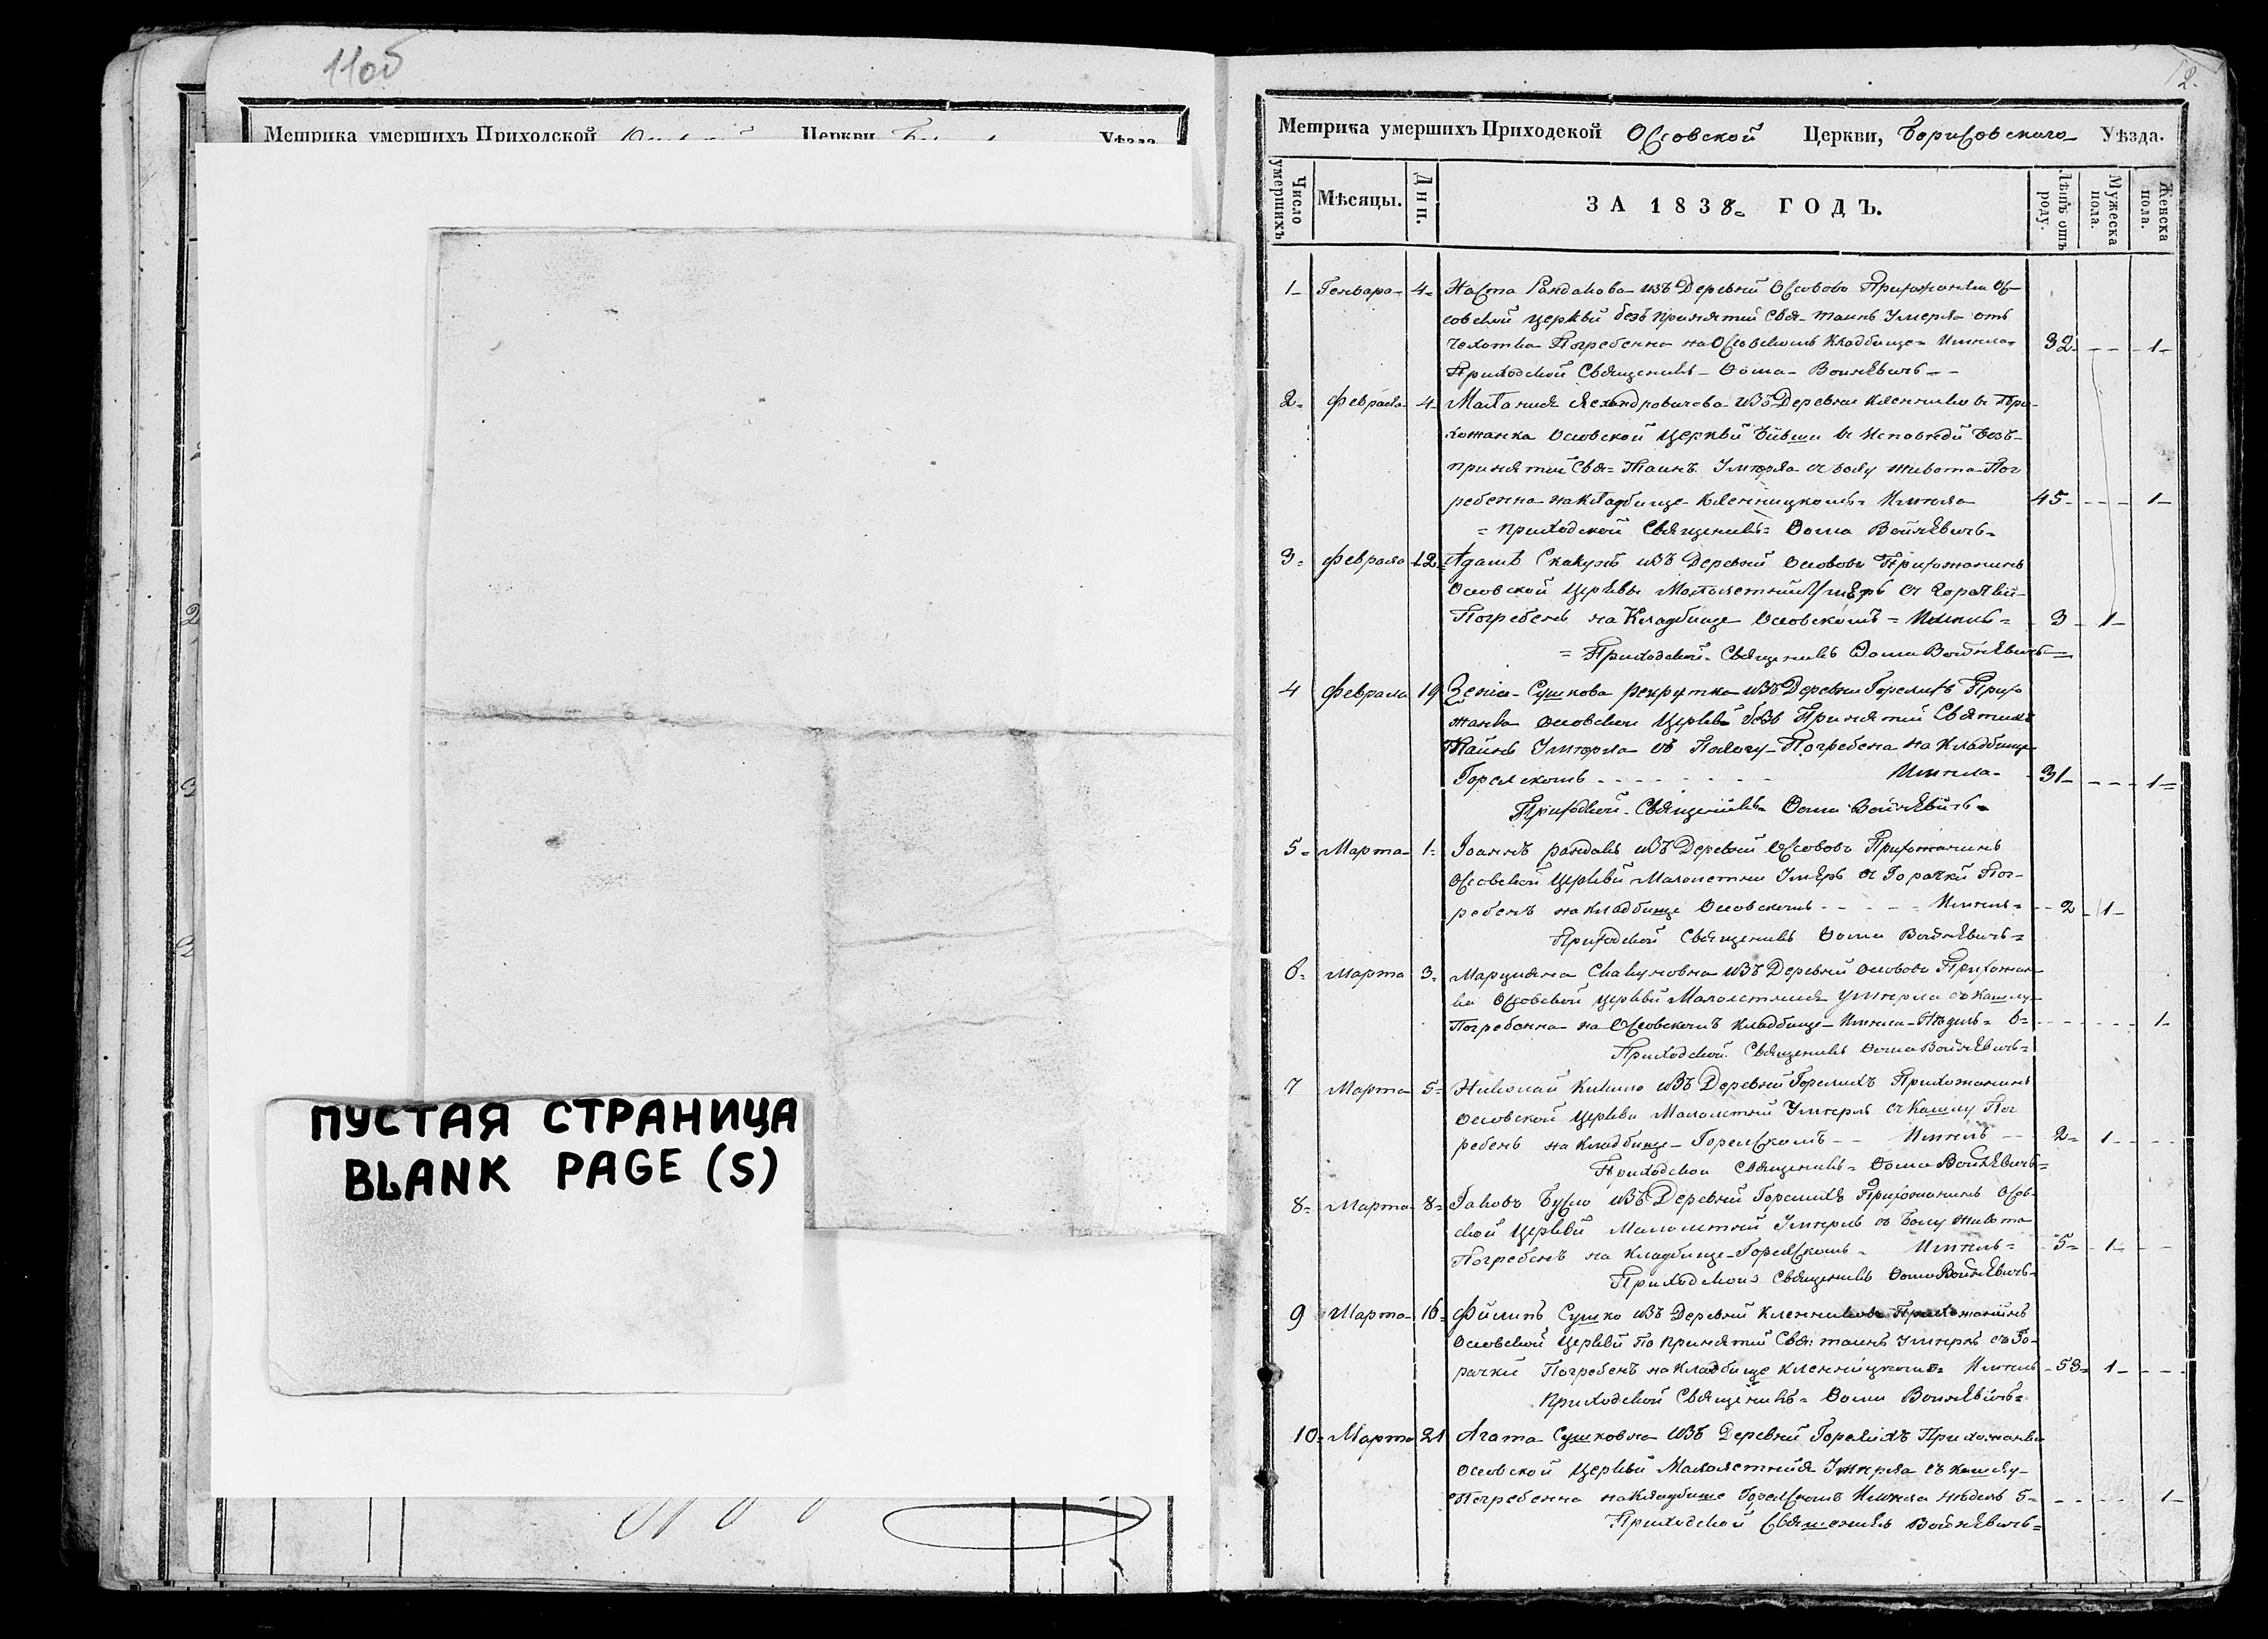 11об
Метрика умершихъ Приходской Церкви Уѣзда
ПУСТАЯ СТРАНИЦА
BLANK PAGE (S)
12.
Метрика умершихъ Приходской Оссовской Церкви, Борисовского Уѣзда.
Число умершихъ Мѣсяцы. Дни. ЗА 1838 ГОДЪ. Лѣтъ отъ роду. Мужеска пола. Женска пола.
1 Генвара 4 Наста Рандакова изъ Деревни Оссовово Прихожанка Ос-
совской церкви безъ принятій Свя. таинъ Умерла отъ
Погребенна на Оссовскомъ Кладбище Имѣла 32 1
Приходской Священикъ Ѳома Войнѣвичъ
2 Февраля 4 из Деревни При-
хожанка Осовской Церкви Бывши Исповѣди Безъ
принятій Свя. Таинъ Умѣрла съ болу живота Пог
ребенна на Кладбище Кленницкомъ Имѣла 45 1
приходской Священикъ Ѳома Войнѣвичъ
3 Февраля 12 Адамъ Скакунъ изъ Деревни Осовово Прихожанинъ
Осовской Церквы Малолетний Умѣръ съ Горачки
Погребенъ на Кладбище Осовскомъ Имѣлъ 3 1
Приходской Священикъ Ѳома Войнѣвичъ
4 Февраля 19 Зенія Сушкова рекрутка изъ Деревни Горелихъ Прихо
жанка Осовской Церкви безъ Принятій Святихъ
Таинъ Умѣрла Погребена на Кладбище
Горелскомъ Имѣла 31 1
Приходской Священикъ Ѳома Войнѣвичъ
5 Марта 1 Іоаннъ рандакъ изъ Деревни Оссовово Прихожанинъ
Оссовской Церкви Малолетни Умѣръ съ Горачки Пог-
ребенъ на кладбище Осовскомъ Имѣлъ 2 1
Приходской Священикъ Ѳома Войнѣвичъ
6 Марта 3 Марцияна Скакуновна изъ Деревни Осовово Прихожан-
ка Оссовской церкви Малолетния умѣрла съ Кашлу
Погребенна на Оссовскомъ кладбище Имѣла Нѣдель 6 1
Приходской Священикъ Ѳома Войнѣвичъ
7 Марта 5 Николай Кикило изъ Деревни Горелихъ Прихожанинъ
Осовской Церкви Малолетни Умѣрлъ съ Кашлу Пог
ребенъ на Кладбище Горелскомъ Имѣлъ 2 1
Приходской Священикъ Ѳома Войнѣвичъ
8 Марта 8 Іаковъ Бусло изъ Деревни Горелихъ Прихожанинъ Осов-
ской Церкви Малолетний Умѣрлъ съ Болу Живота
Погребенъ на Кладбище Горелскомъ Имѣлъ 5 1
Приходской Священикъ Ѳома Войнѣвичъ
9 Марта 16 Филипъ Сушко изъ Деревни Кленникова Прихожанинъ
Осовской Церкви По принятій Свя. таинъ Умѣрлъ съ Го-
рачки Погребенъ на Кладбище Кленницкомъ Имѣлъ 53 1
приходской Священикъ Ѳома Войнѣвичъ
10 Марта 21 Агата Сушковна изъ Деревни Горелихъ Прихожанка
Осовской Церкви Малолетнияя Умѣрла съ кашлу
Погребенна на Кладбище Горелскомъ Имѣла нѣдель 5 1
Приходской Священикъ Войнѣвичъ